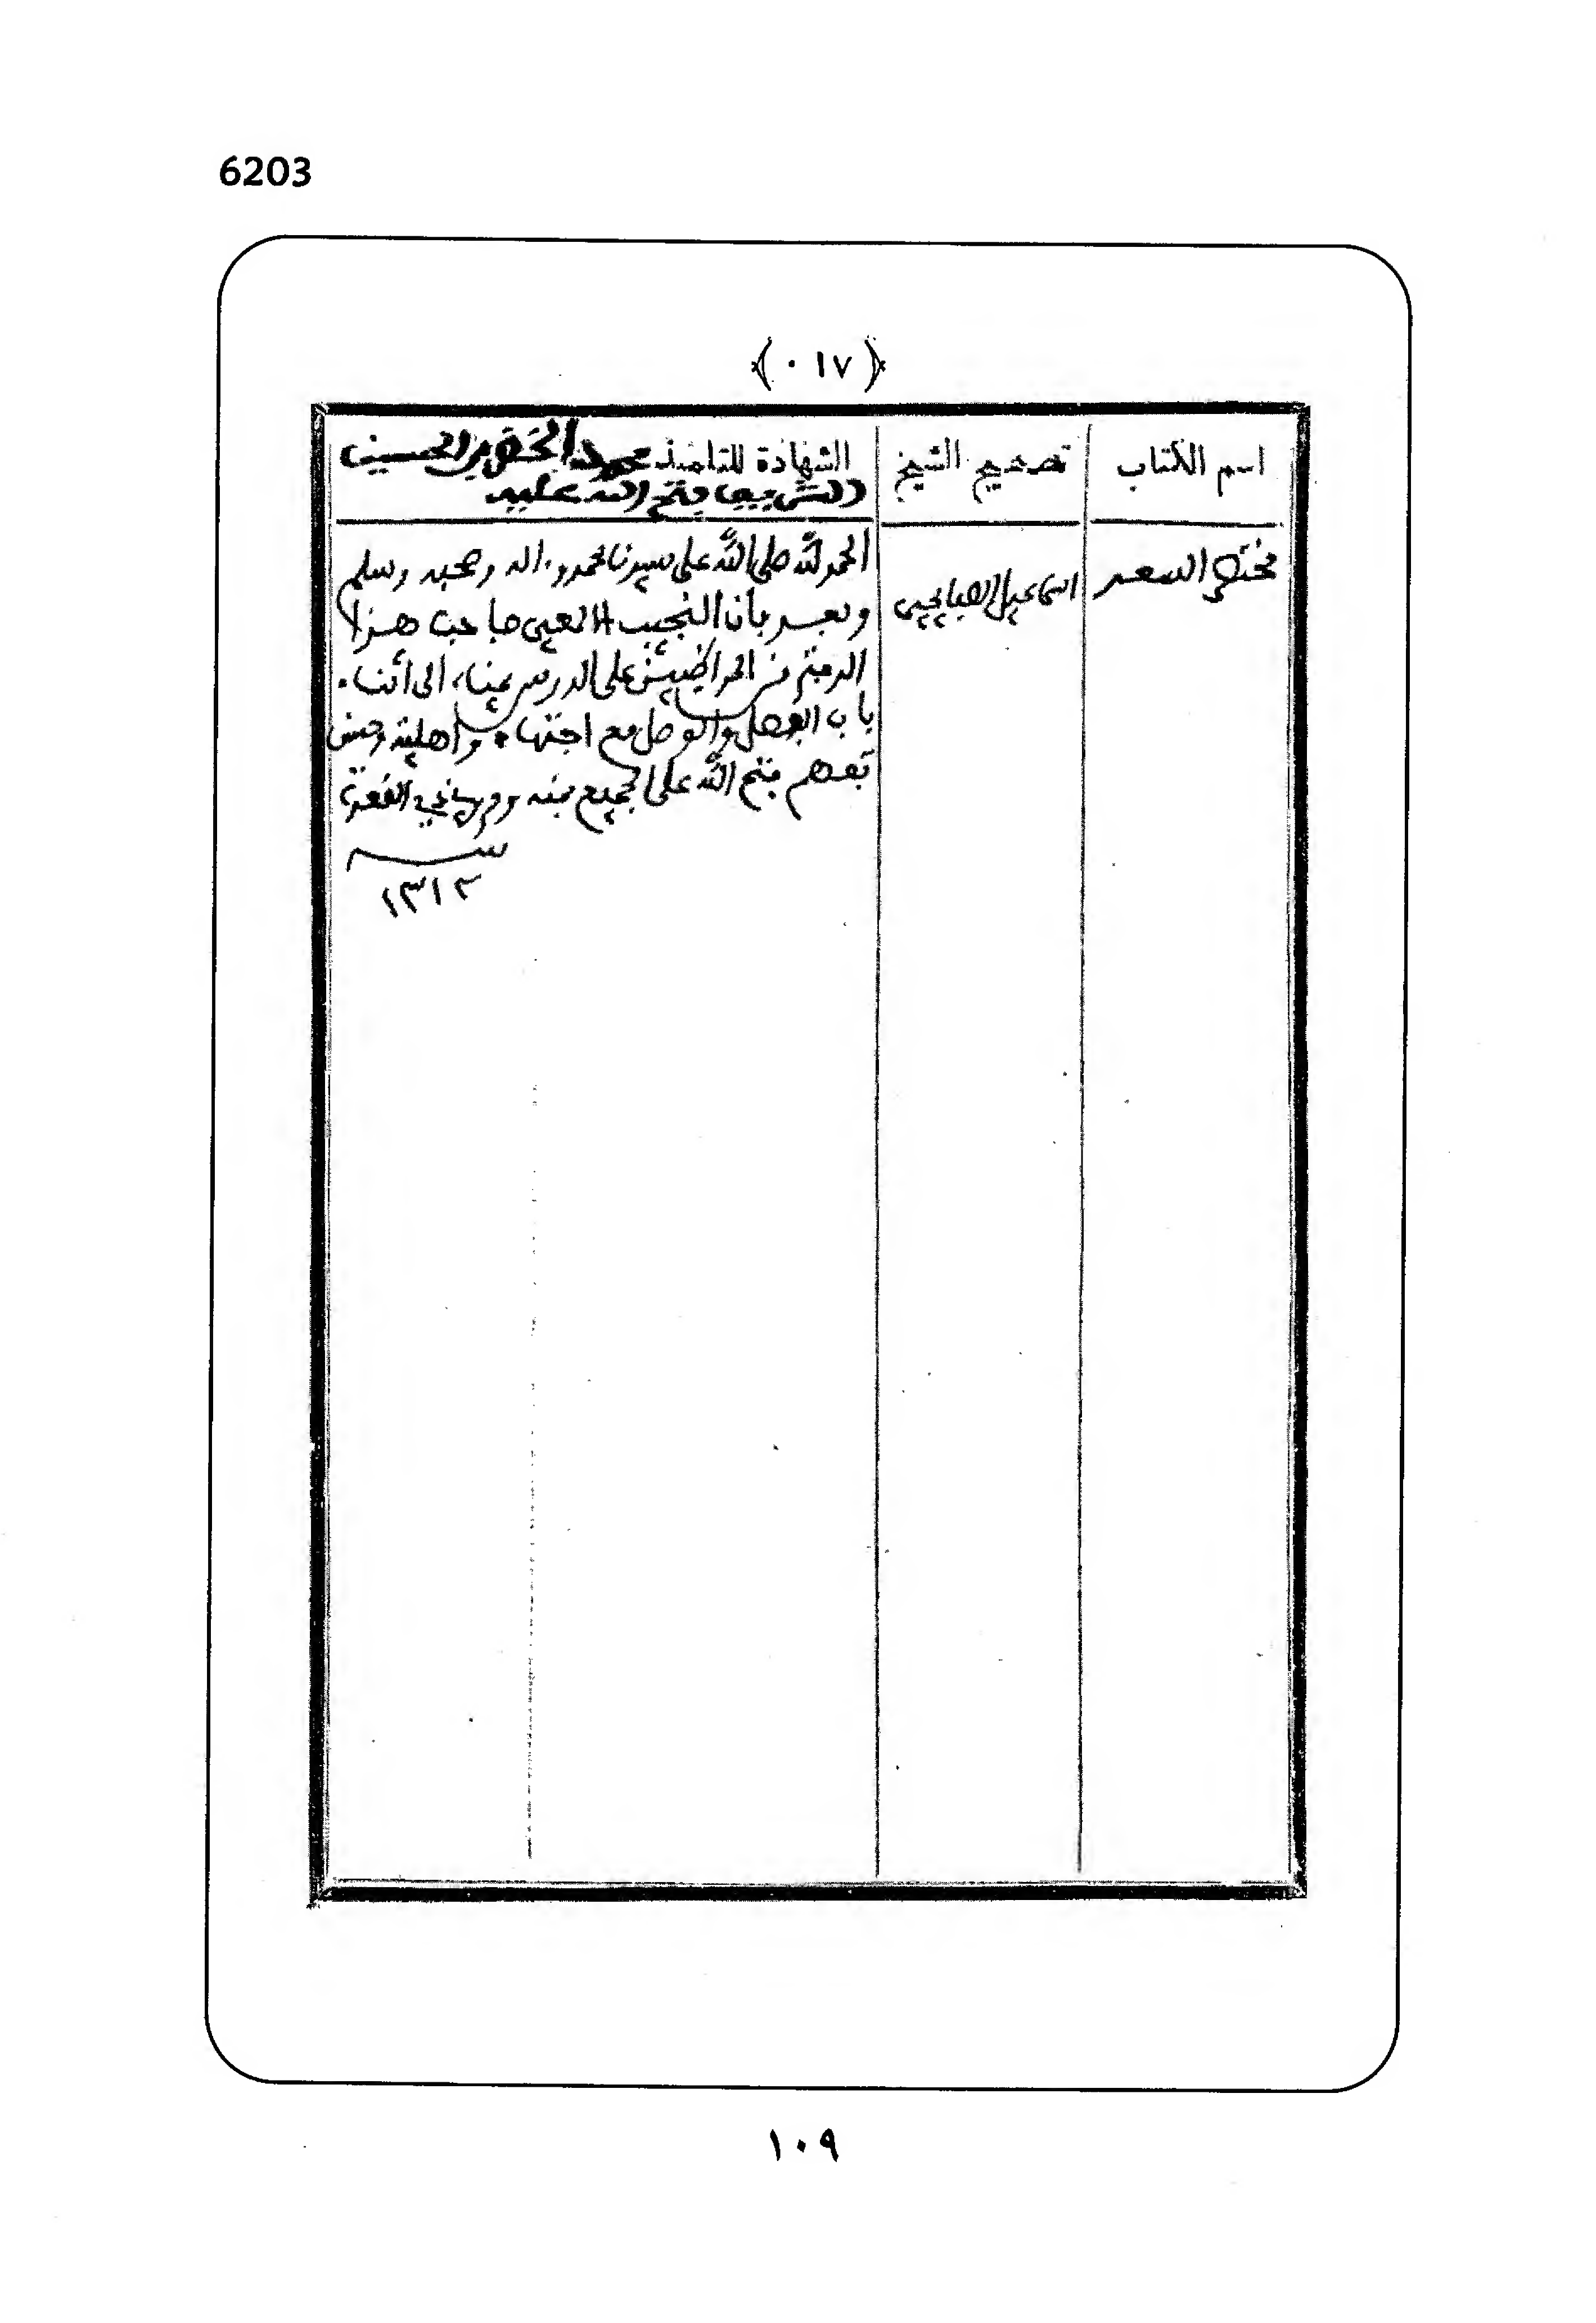 6203
﴿ ٠١٧ ﴾
اسم الكتاب
تصحيح الشيخ
الشهادة للتلميذ محمد الخضر بن الحسين
الشريف فتح الله عليه
مختصر السعد
اسماعيل الصفايحي
الحمد لله صلى الله على سيدنا محمد وءاله وصحبه وسلم
وبعد فان النجيب الالمعي صاحب هذا
الدفتر من المواظبين على الدروس عينا الى أثناء
باب الفصل والوصل مع اجتهاد واهلية وحسن
تفهم فتح الله على الجميع بمنه وفي ذي القعدة
سنة
١٣١٢
١٠٩